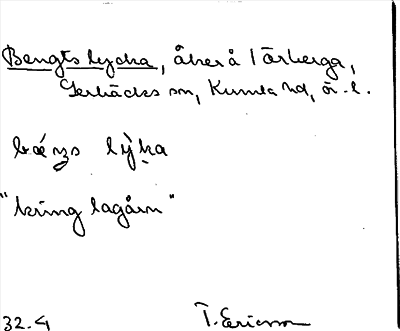 Bengts lycka, åker å Törberga,
Gerbäcks sn, Kumla hd, ör. l.
bǽŋs lỳka
"kring lagårn"
32.4 T. Ericsson